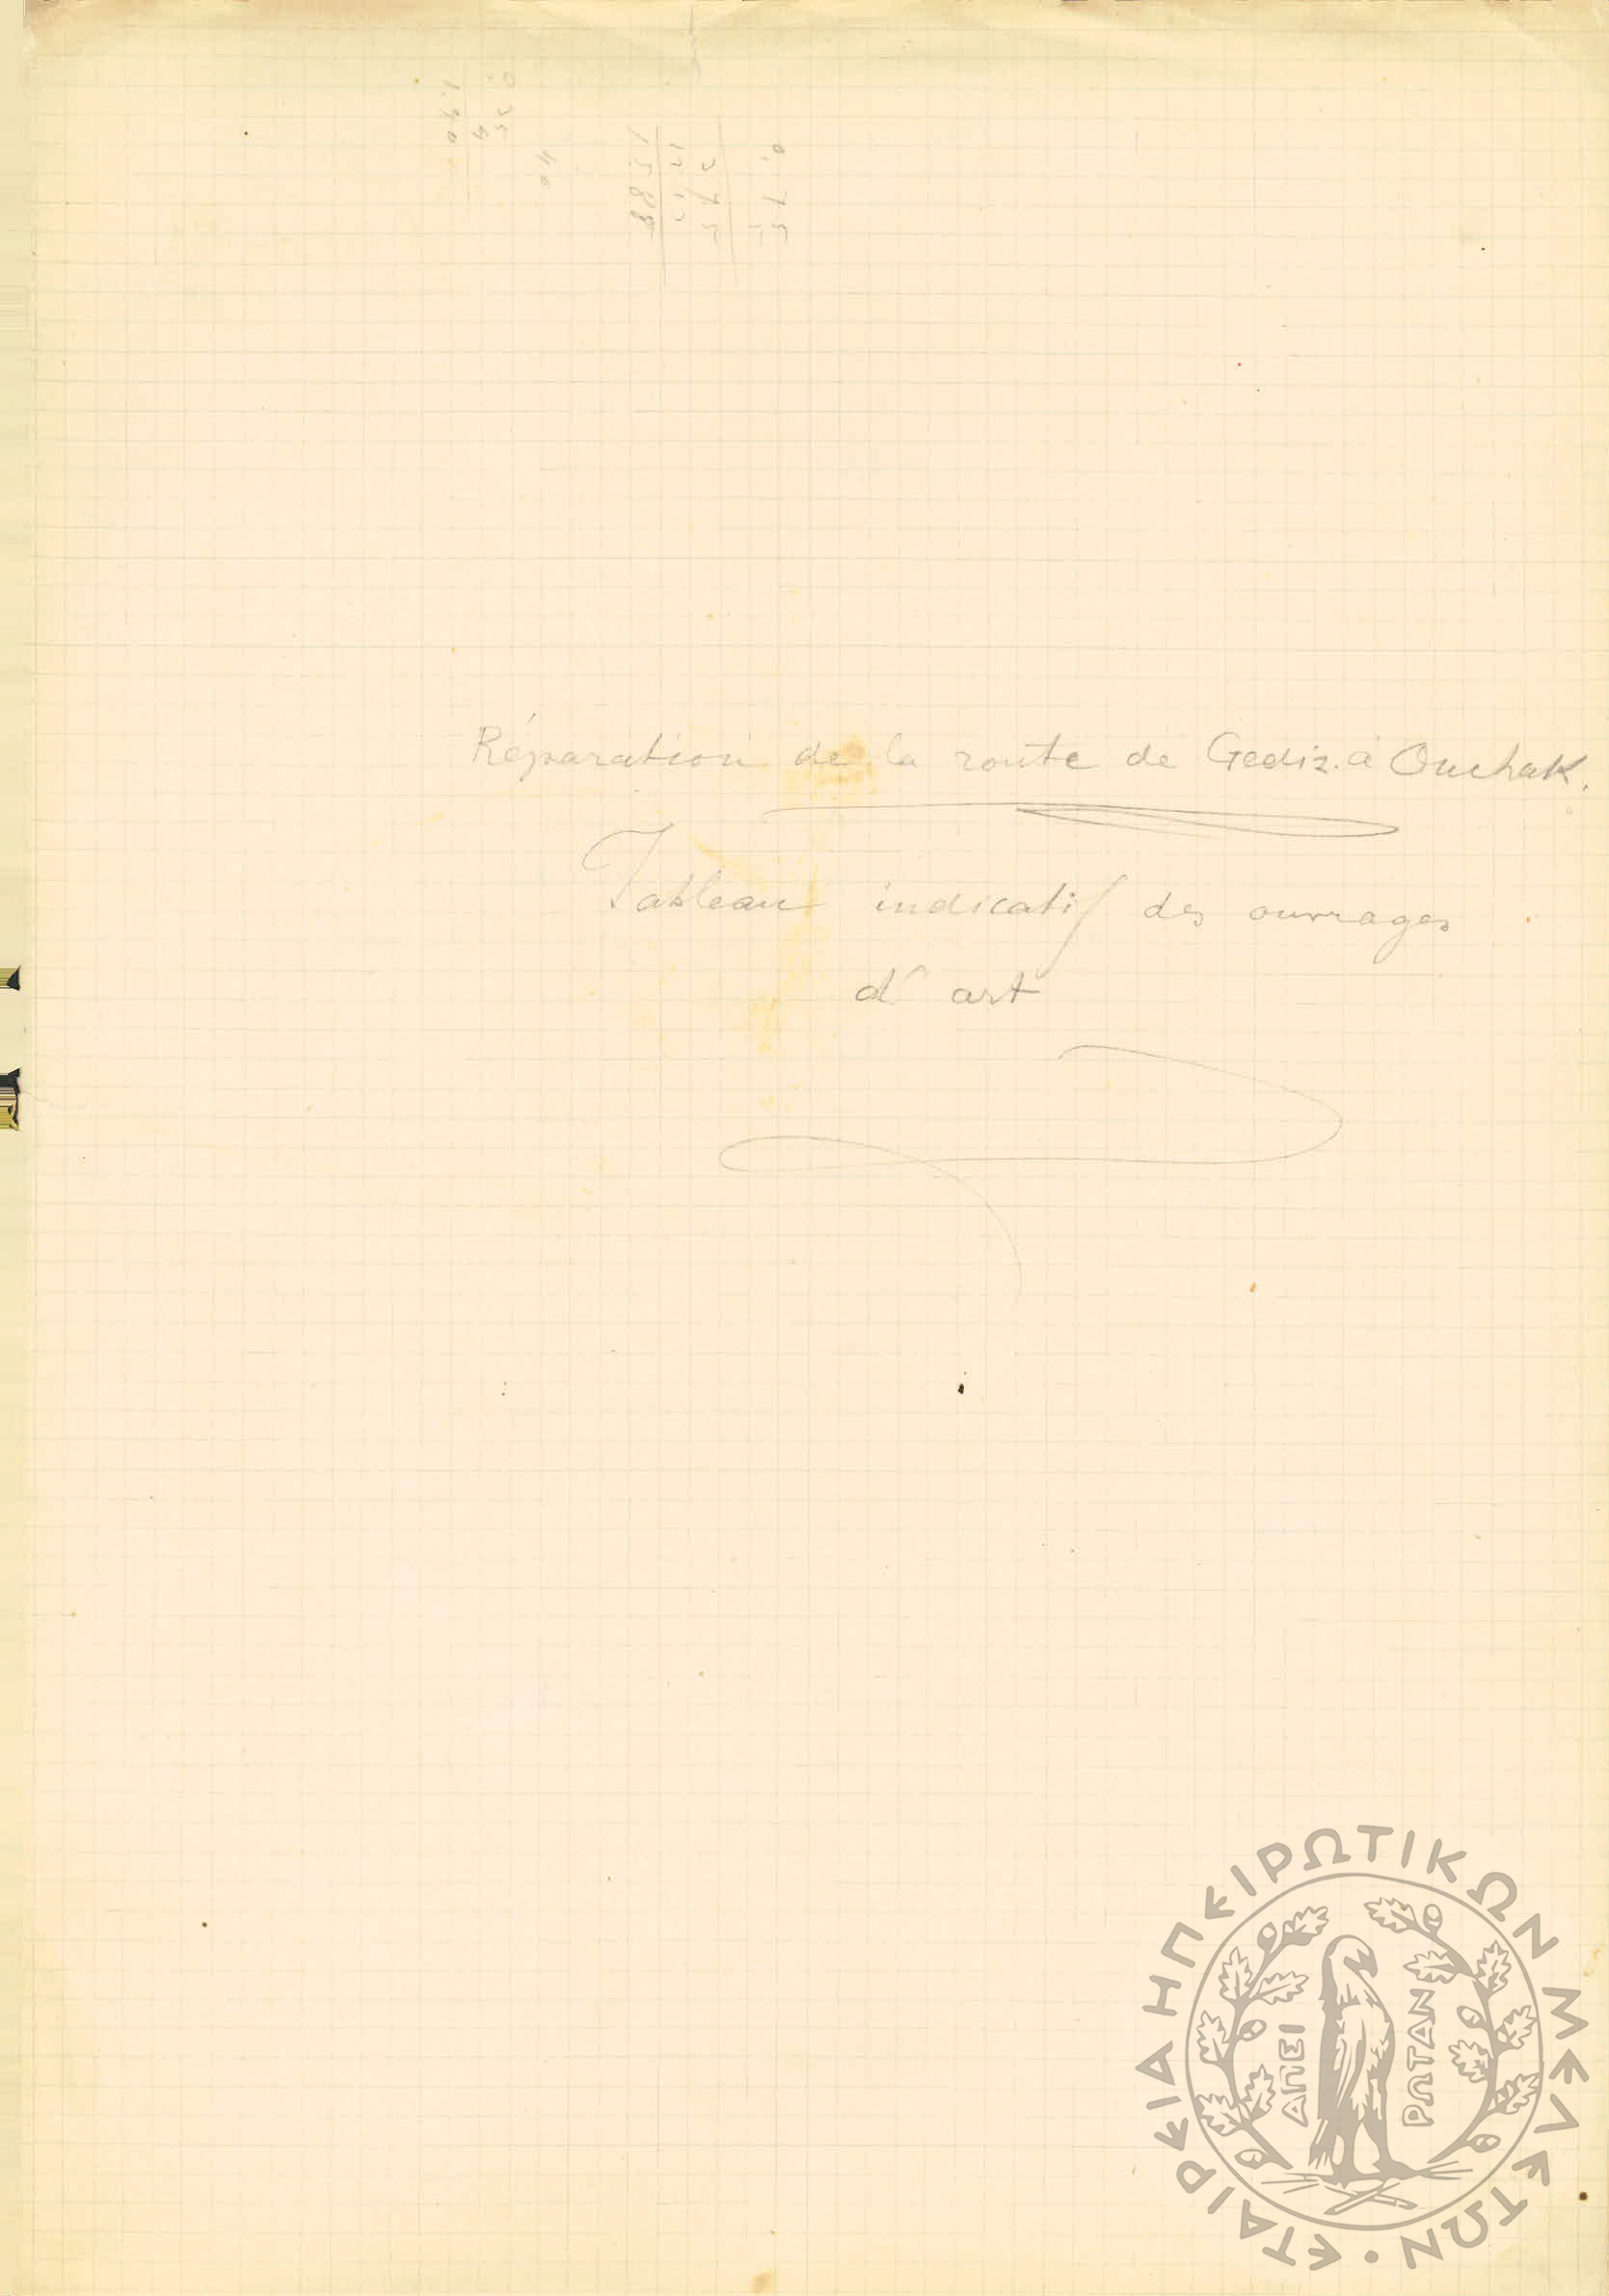 Réparation de la route de Gediz à Ouchak.
Tableau indicatif des ouvrages
d'art
ΕΤΑΙΡΕΙΑ ΗΠΕΙΡΩΤΙΚΩΝ ΜΕΛΕΤΩΝ
ΑΠΕΙ
ΡΩΤΑΝ